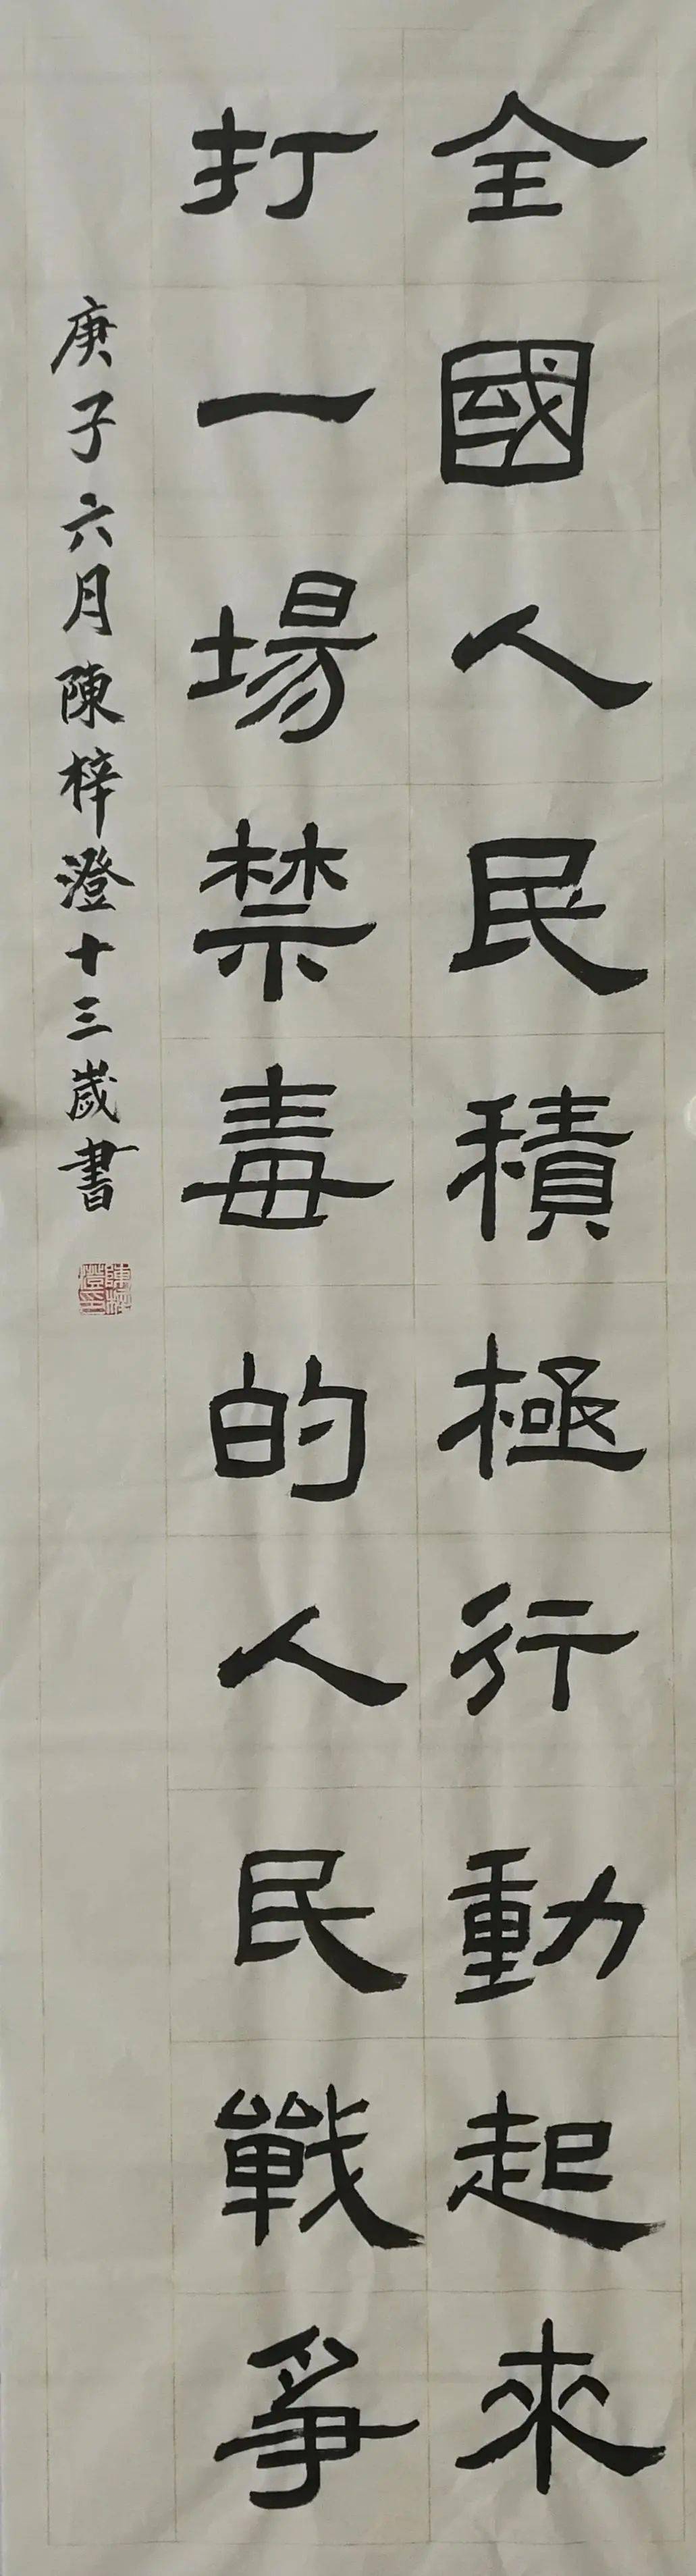 全國人民積極行動起來
打一場禁毒的人民戰爭
庚子六月陳梓澄十三歲書
陳梓澄印